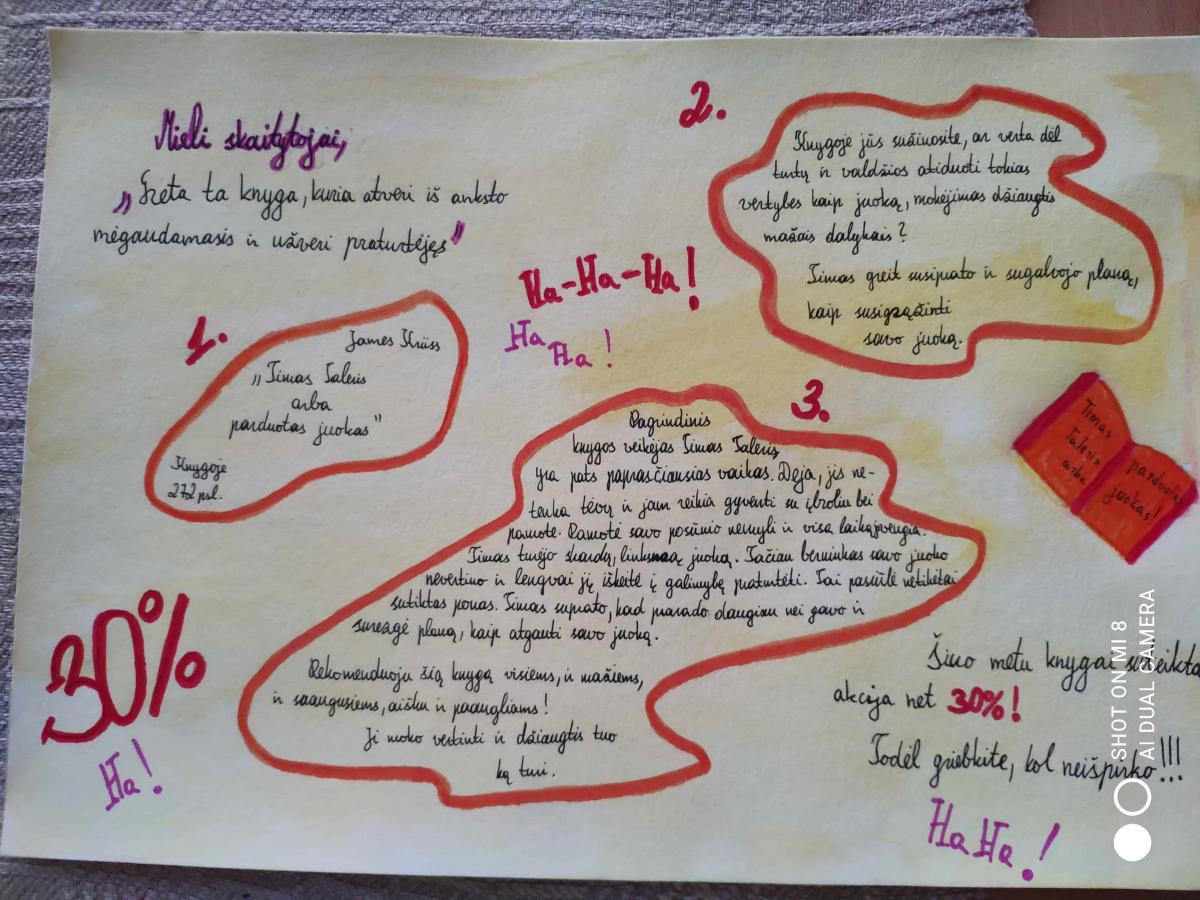 Mieli skaitytojai,
„Greta ta knyga, kuria atveri iš anksto
mėgaudamasis ir užveri praturtėjęs"
1.
James Krüss
„Timas Taleris
arba
parduotas juokas"
Knygoje
272 psl.
2.
Knygoje jūs sužinosite, ar verta dėl
turtų ir valdžios atiduoti tokias
vertybes kaip juoką, mokėjimas džiaugtis
mažais dalykais?
Timas greit susiprato ir sugalvojo planą,
kaip susigrąžinti
savo juoką.
Ha-Ha-Ha!
Ha
Ha!
3.
Pagrindinis
knygos veikėjas Timas Taleris
yra pats paprasčiausias vaikas. Deja, jis ne-
tenka tėvų ir jam reikia gyventi su įbroliu bei
pamote. Pamotė savo posūnio nemyli ir visą laiką
Timas turėjo skardų, juoką. Tačiau berniukas savo juoko
nevertino ir lengvai jį iškeitė į galimybę praturtėti. Tai pasiūlė netikėtai
sutiktas ponas. Timas suprato, kad prarado daugiau nei gavo ir
surezgė planą, kaip atgauti savo juoką.
Rekomenduoju šią knygą visiems, ir mažiems,
ir suaugusiems, aišku ir paaugliams!
Ji moko vertinti ir džiaugtis tuo
ką turi.
Timas
Taleris
arba
parduotas
juokas!
30%
Ha!
Šiuo metu knygai suteikta
akcija net 30%!
Todėl griebkite, kol neišpirko!!!
Ha Ha!
SHOT ON MI 8
AI DUAL CAMERA